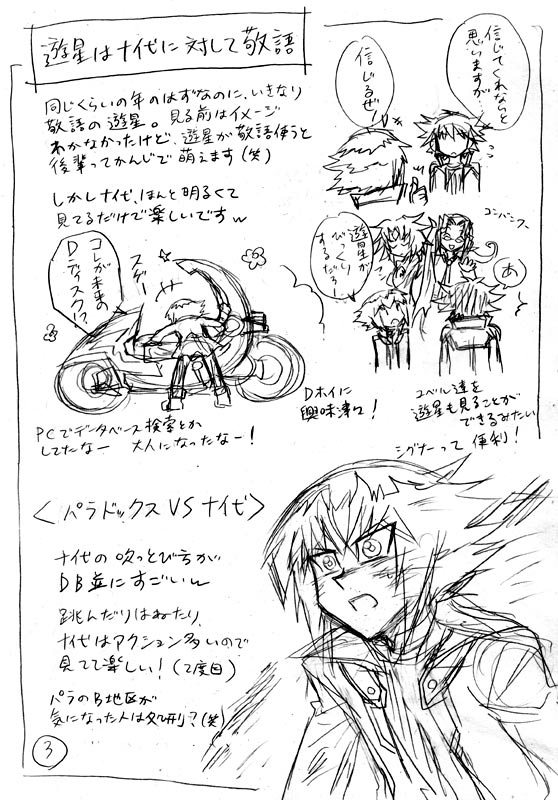 遊星は十代に対して敬語
同じくらいの年のはずなのに、いきなり
敬語の遊星。見る前はイメージ
わかなかったけど、遊星が敬語使うと
後輩ってかんじで萌えます(笑)
しかし十代、ほんと明るくて
見てるだけで楽しいですw
信じてくれないと
思いますが…
信じるぜ!
コンバンワ
遊星が
びっくり
するだろ
あ
コレが未来の
Dディスク!?
スゲー
PCでデータベース検索とか
してたなー 大人になったなー!
Dホイに
興味津々!
ユベル達を
遊星も見ることが
できるみたい
シグナーって便利!
<パラドックスVS十代>
十代の吹っとびちが
DB並にすごいw
跳んだりはねたり、
十代はアクション多いので
見てて楽しい!(2度目)
パラのB地区が
気になった人は処刑?(笑)
3